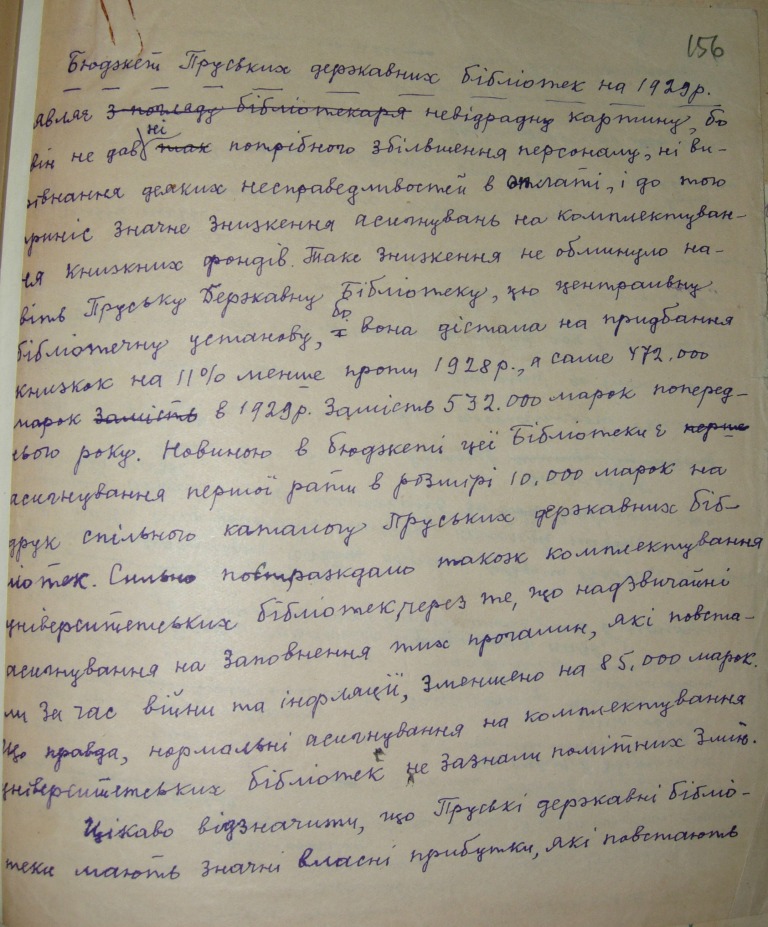 156
Бюджет Пруських державних бібліотек на 1929р.
являє з погляду бібліотекаря невідрадну картину, бо
він не дав ні так потрібного збільшення персоналу, ні ви-
рівнання деяких несправедливостей в оплаті, і до того
приніс значне зниження асигнувань на комплектуван-
ня книжних фондів. Таке зниження не обминуло на-
віть Пруську Державну Бібліотеку, цю центральну
бібліотечну установу, бо вона дістала на придбання
книжок на 11% менше проти 1928р., а саме 472.000
марок замість в 1929р. Замість 532.000 марок поперед-
нього року. Новиною в бюджеті цеї Бібліотеки є перше
асигнування першої рати в розмірі 10.000 марок на
друк спільного каталогу Пруських державних біб-
ліотек. Сильно постраждало також комплектування
університетських бібліотек, через те, що надзвичайні
асигнування на заповнення тих прогалин, які повста-
ли за час війни та інфляції, зменшено на 85.000 марок.
Що правда, нормальні асигнування на комплектування
університетських бібліотек не зазнали помітних змін.
Цікаво відзначити, що Пруські державні бібліо-
теки мають значні власні прибутки, які повстають